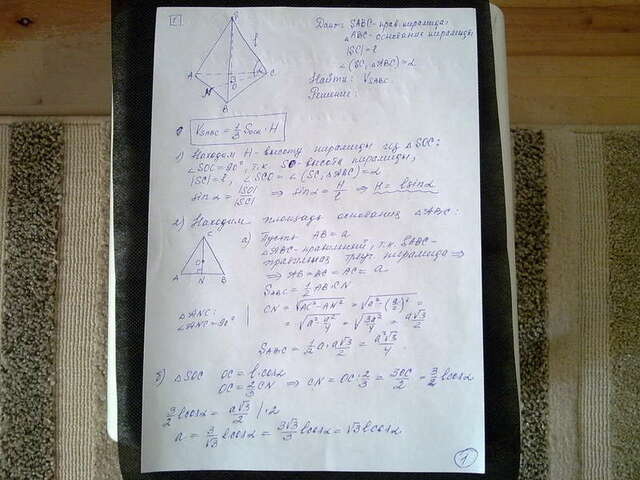 1
S
l
A
C
O
M
B
α
Дано: SABC - прав. пирамида.
△ABC - основание пирамиды
|SC| = l
∠(SC, △ABC) = α
Найти: V_SABC
Решение:
V_SABC = 1/3 S осн · H
1) Находим H - высоту пирамиды из △SOC:
∠SOC = 90°, т.к. SO - высота пирамиды,
|SC| = l, ∠SCO = ∠(SC, △ABC) = α
sin α = |SO|/|SC| ⇒ sin α = H/l ⇒ H = l sin α
2) Находим площадь основания △ABC:
C
A N B
а) Пусть AB = a
△ABC - правильный, т.к. SABC -
правильная треуг. пирамида ⇒
⇒ AB = BC = AC = a
S△ABC = 1/2 AB · CN
△ANC:
∠ANC = 90°
CN = √(AC² - AN²) = √(a² - (a/2)²) =
= √(a² - a²/4) = √(3a²/4) = a√3/2
S△ABC = 1/2 a · a√3/2 = a²√3/4
б) △SOC OC = l · cos α
OC = 2/3 CN ⇒ CN = OC : 2/3 = 3OC/2 = 3/2 l cos α
3/2 l cos α = a√3/2 | · 2
a = 3/√3 l cos α = 3√3/3 l cos α = √3 l cos α
1